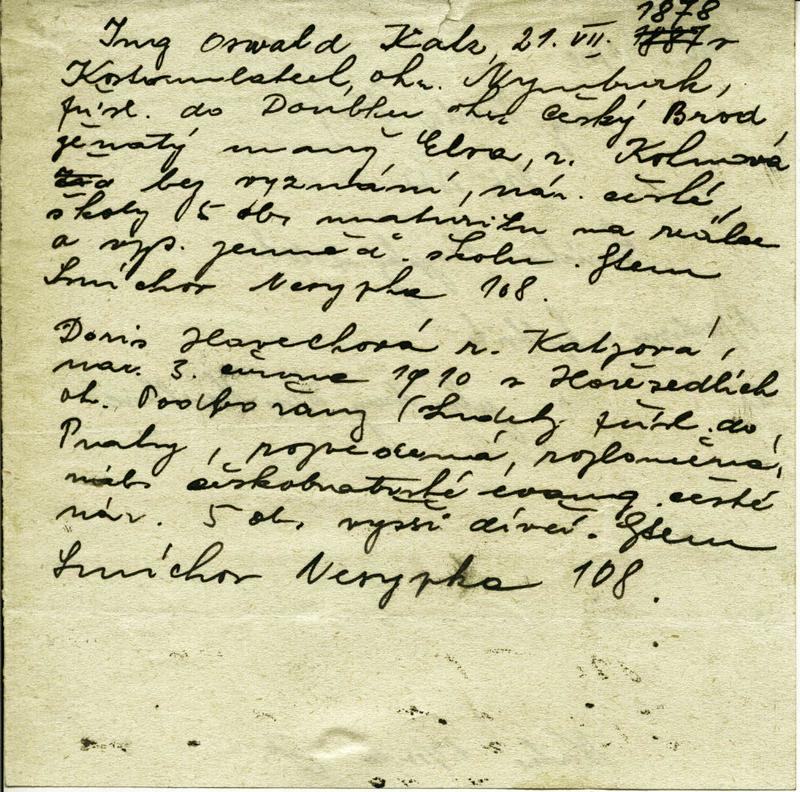 1878
Ing Oswald Katz, 21. VII. 1887 v
Kostomlatech, okr. Nymburk,
přísl. do Doubku okr. Český Brod,
ženatý manž Elsa, r. Kohnová
bez vyznání, nár. české,
školy 5 ob. maturitu na reálce
a vyš. škola. Bytem
Smíchov Nesypka 108.
Doris Havechová r. Katzová,
nar. 3. června 1910 v Hořesedlích
ok. Podbořany (Sudety přísl. do
Prahy, rozvedená, rozloučená,
náb. českobratrské evang. české
nár. 5 ob. vyšší dívčí. Bytem
Smíchov Nesypka 108.